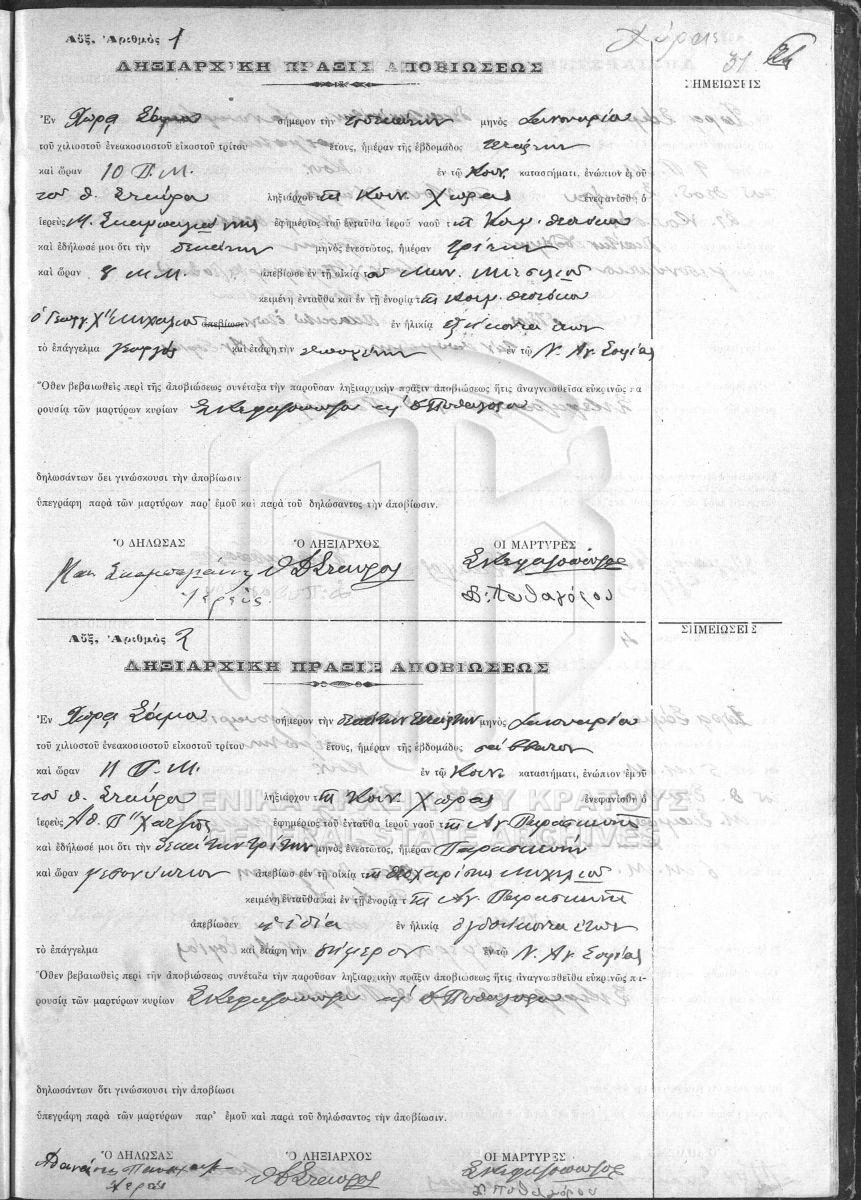 Αὔξ. Ἀριθμὸς 1
Χώρας
31
ΛΗΞΙΑΡΧΙΚΗ ΠΡΑΞΙΣ ΑΠΟΒΙΩΣΕΩΣ
ΣΗΜΕΙΩΣΕΙΣ
Ἐν Χώρᾳ Σάμου σήμερον τὴν ἑνδεκάτην μηνὸς Ἰανουαρίου
τοῦ χιλιοστοῦ ἐνεακοσιοστοῦ εἰκοστοῦ τρίτου ἔτους, ἡμέραν τῆς ἑβδομάδος τετάρτην
καὶ ὥραν 10 Π.Μ. ἐν τῷ Κοιν. καταστήματι, ἐνώπιον ἐμοῦ
τοῦ Δ. Σταύρου ληξιάρχου τῆς Κοιν. Χώρας ἐνεφανίσθη ὁ
ἱερεὺς Μ. ἐφημέριος τοῦ ἐνταῦθα ἱεροῦ ναοῦ τῆς Κοιμ. Θεοτόκου
καὶ ἐδήλωσέ μοι ὅτι τὴν δεκάτην μηνὸς ἐνεστῶτος, ἡμέραν τρίτην
καὶ ὥραν 8 Μ.Μ. ἀπεβίωσε ἐν τῇ οἰκίᾳ του
κειμένη ἐνταῦθα καὶ ἐν τῇ ἐνορίᾳ τῆς Κοιμ. Θεοτόκου
ὁ Γεωργ. Χ"Μιχαλίου ἀπεβίωσεν ἐν ἡλικίᾳ ἑξήκοντα ἐτῶν
τὸ ἐπάγγελμα γεωργὸς καὶ ἐτάφη τὴν ἐν τῷ Ν. Ἁγ. Σοφίας
Ὅθεν βεβαιωθεὶς περὶ τῆς ἀποβιώσεως συνέταξα τὴν παροῦσαν ληξιαρχικὴν πρᾶξιν ἀποβιώσεως ἥτις ἀναγνωσθεῖσα εὐκρινῶς πα
ρουσίᾳ τῶν μαρτύρων κυρίων Πυθαγόρου
δηλωσάντων ὅει γινώσκουσι τὴν ἀποβίωσιν
ὑπεγράφη παρὰ τῶν μαρτύρων παρ' ἐμοῦ καὶ παρὰ τοῦ δηλώσαντος τὴν ἀποβίωσιν.
Ὁ ΔΗΛΩΣΑΣ Ὁ ΛΗΞΙΑΡΧΟΣ ΟΙ ΜΑΡΤΥΡΕΣ
Δ Σταύρος
Ἱερεὺς Δ: Πυθαγόρου
Αὔξ. Ἀριθμὸς 2
ΣΗΜΕΙΩΣΕΙΣ
ΛΗΞΙΑΡΧΙΚΗ ΠΡΑΞΙΣ ΑΠΟΒΙΩΣΕΩΣ
Ἐν Χώρᾳ Σάμου σήμερον τὴν μηνὸς Ἰανουαρίου
τοῦ χιλιοστοῦ ἐνεακοσιοστοῦ εἰκοστοῦ τρίτου ἔτους, ἡμέραν τῆς ἑβδομάδος σάββατον
καὶ ὥραν 11 Π.Μ. ἐν τῷ Κοιν. καταστήματι, ἐνώπιον ἐμοῦ
τοῦ Δ. Σταύρου ληξιάρχου τῆς Κοιν. Χώρας ἐνεφανίσθη ὁ
ΓΕΝΙΚΑ ΑΡΧΕΙΑ ΤΟΥ ΚΡΑΤΟΥΣ
ἱερεὺς Ἀθ. ἐφημέριος τοῦ ἐνταῦθα ἱεροῦ ναοῦ τῆς Ἁγ. Παρασκευῆς
GENERAL STATE ARCHIVES
καὶ ἐδήλωσέ μοι ὅτι τὴν δεκάτην τρίτην μηνὸς ἐνεστῶτος, ἡμέραν Παρασκευὴν
καὶ ὥραν μεσονύκτιον ἀπεβίωσε ἐν τῇ οἰκίᾳ της
κειμένη ἐνταῦθα καὶ ἐν τῇ ἐνορίᾳ τῆς Ἁγ. Παρασκευῆς
ἀπεβίωσεν ἡ ἰδία ἐν ἡλικίᾳ ὀγδοήκοντα ἐτῶν
τὸ ἐπάγγελμα καὶ ἐτάφη τὴν σήμερον ἐν τῷ Ν. Ἁγ. Σοφίας
Ὅθεν βεβαιωθεὶς περὶ τὴν ἀποβιώσεως συνέταξα τὴν παροῦσαν ληξιαρχικὴν πρᾶξιν ἀποβιώσεως ἥτις ἀναγνωσθεῖθα εὐκρινῶς πα-
ρουσίᾳ τῶν μαρτύρων κυρίων Πυθαγόρου
δηλωσάντων ὅτι γινώσκουσι τὴν ἀποβίωσι
ὑπεγράφη παρὰ τῶν μαρτύρων παρ' ἐμοῦ καὶ παρὰ τοῦ δηλώσαντος τὴν ἀποβίωσιν.
Ὁ ΔΗΛΩΣΑΣ Ὁ ΛΗΞΙΑΡΧΟΣ ΟΙ ΜΑΡΤΥΡΕΣ
Δ Σταύρος
Ἱερεὺς Δ. Πυθαγόρου